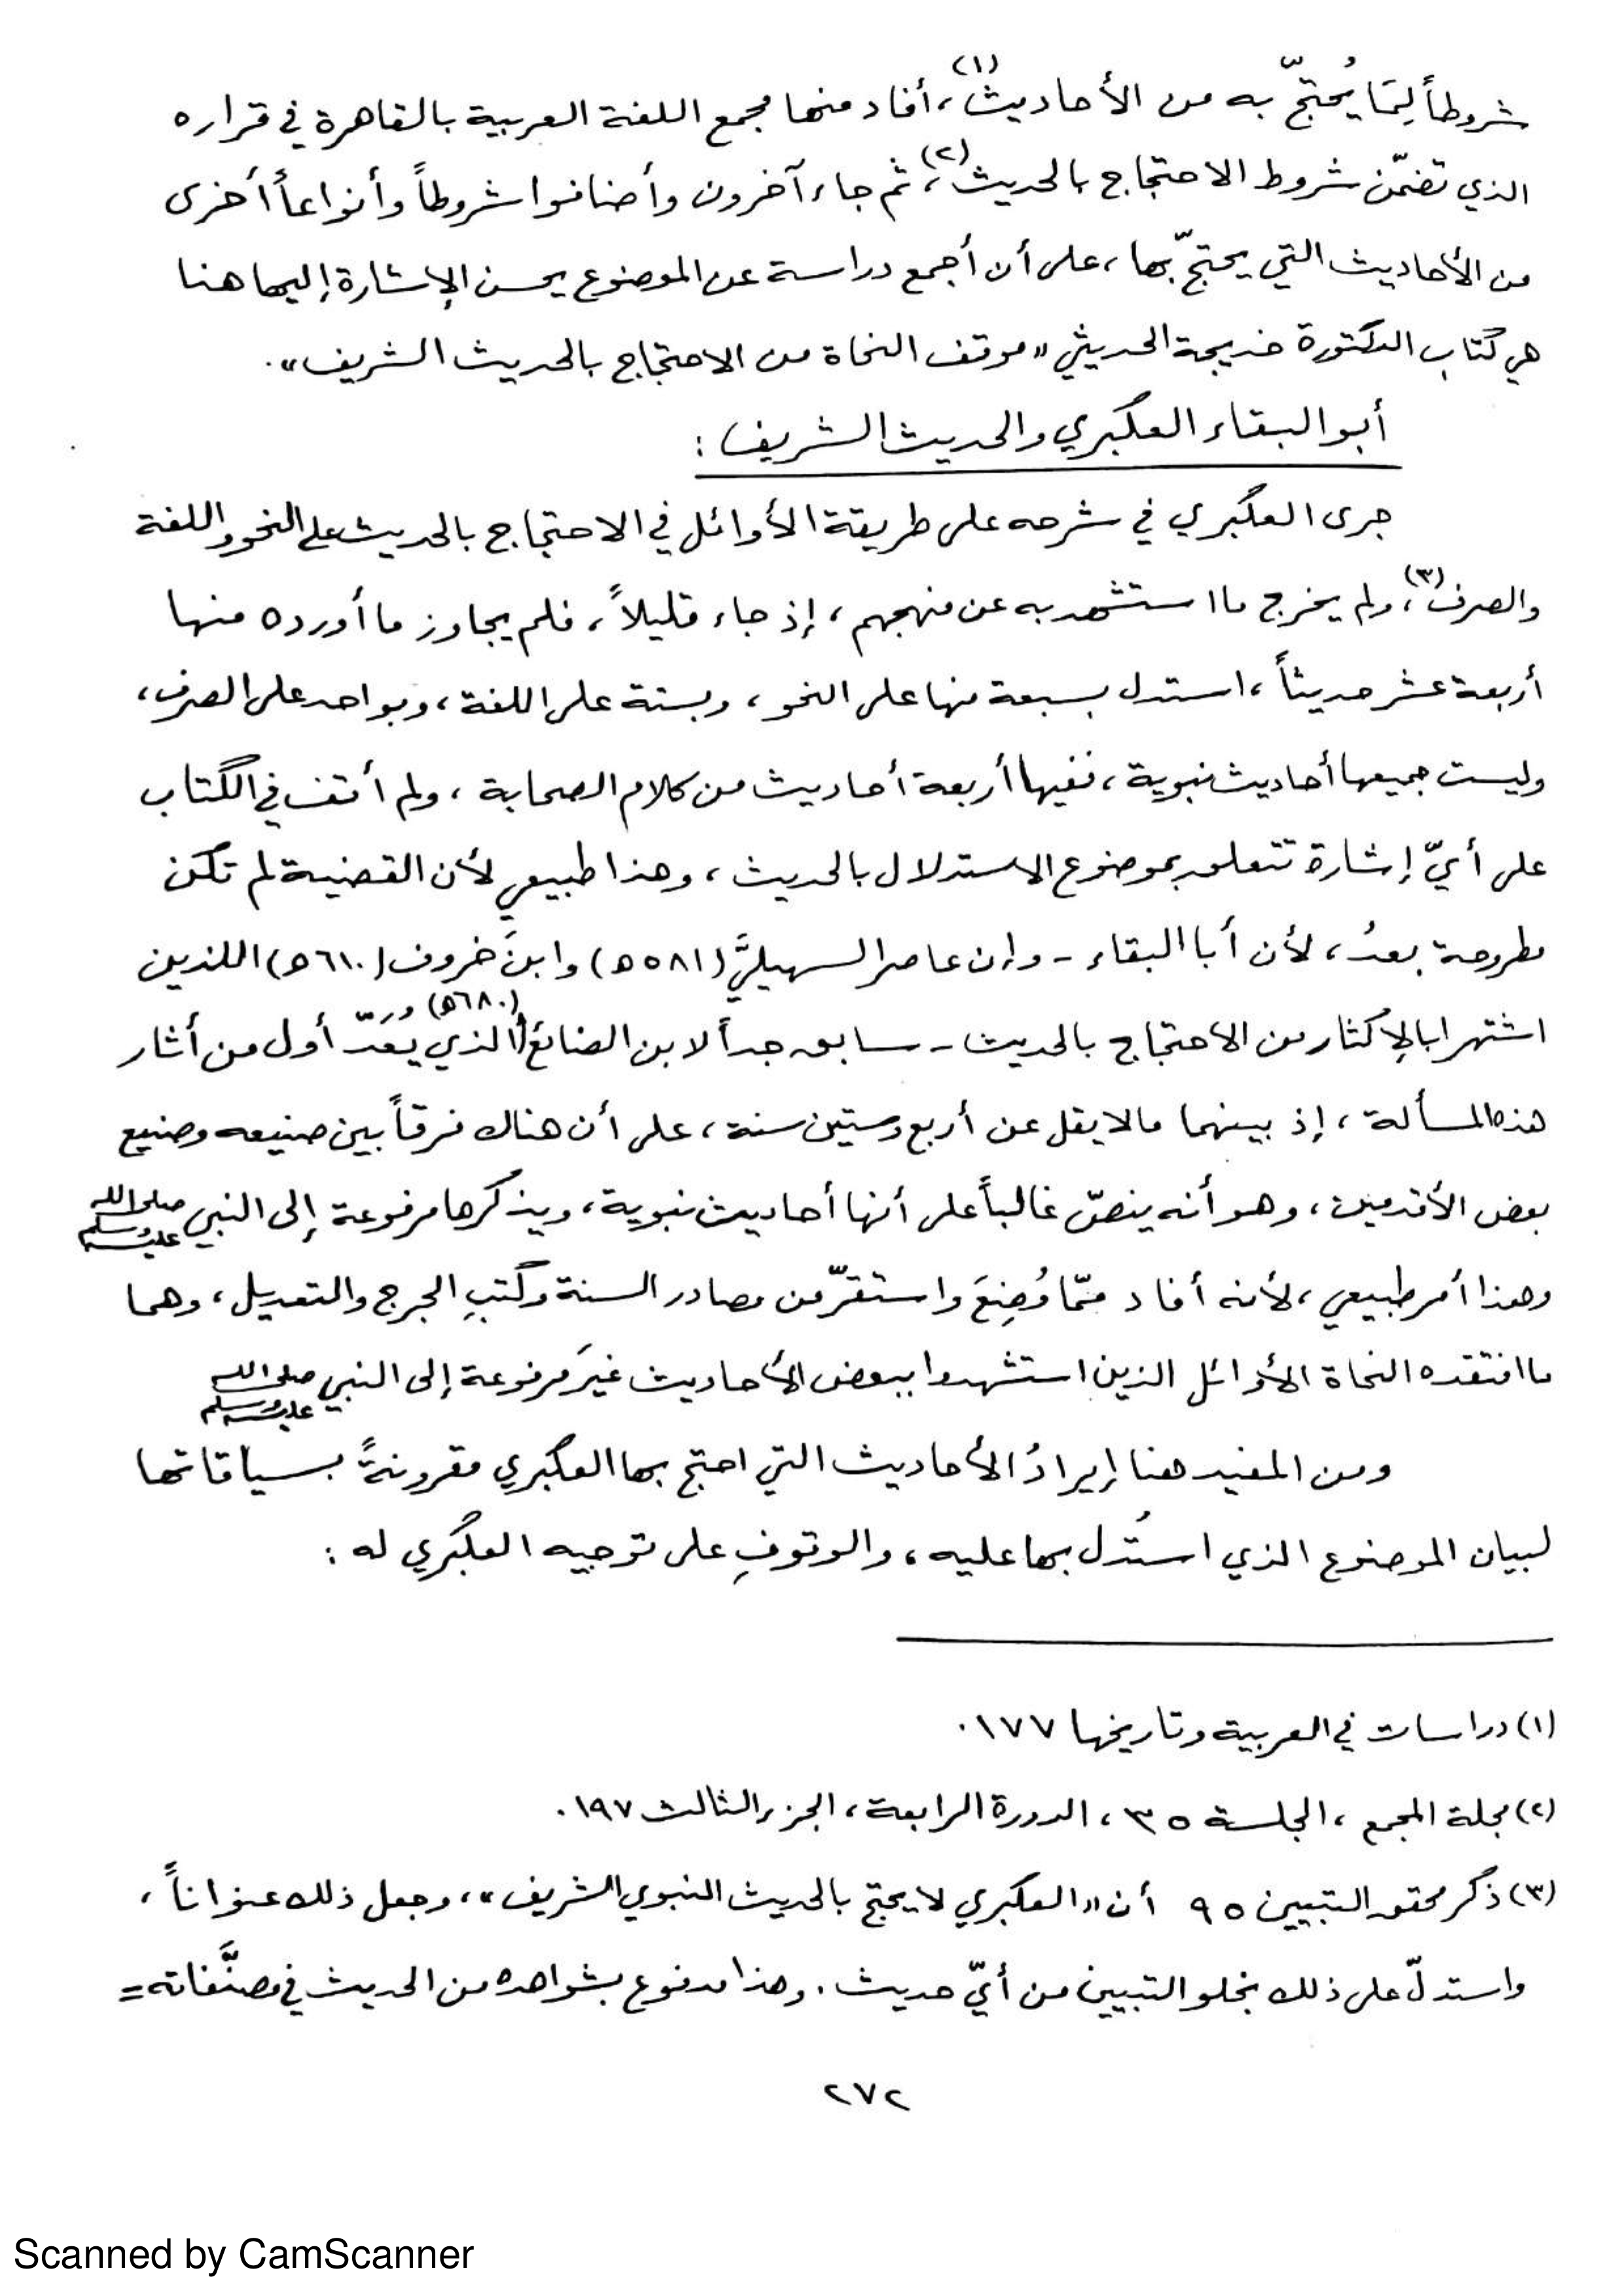 شروطاً لِمَا يُحتجّ به من الأحاديث(١)، أفاد منها مجمع اللغة العربية بالقاهرة في قراره
الذي تضمّن شروط الاحتجاج بالحديث(٢)، ثم جاء آخرون وأضافوا شروطاً وأنواعاً أخرى
من الأحاديث التي يحتجّ بها، على أن أجمع دراسة عن الموضوع يحسن الإشارة إليها هنا
هي كتاب الدكتورة خديجة الحديثي «موقف النحاة من الاحتجاج بالحديث الشريف».
أبو البقاء العكبري والحديث الشريف :
جرى العكبري في شرحه على طريقة الأوائل في الاحتجاج بالحديث على النحو واللغة
والصرف(٣)، ولم يخرج ما استشهد به عن منهجهم، إذ جاء قليلاً، فلم يجاوز ما أورده منها
أربعة عشر حديثاً، استدل بسبعة منها على النحو، وبستة على اللغة، وبواحد على الصرف،
وليست جميعها أحاديث نبوية، ففيها أربعة أحاديث من كلام الصحابة، ولم أقف في الكتاب
على أيّ إشارة تتعلق بموضوع الاستدلال بالحديث، وهذا طبيعي لأن القضية لم تكن
مطروحة بعدُ، لأن أبا البقاء - وإن عاصر السهيليَّ (٥٨١ه) وابنَ خروف (٦١٠ه) اللذين
اشتهرا بالإكثار من الاحتجاج بالحديث - سابق جداً لابن الضائع (٦٨٠ه) الذي يُعَدّ أول من أثار
هذه المسألة، إذ بينهما مالا يقل عن أربع وستين سنة، على أن هناك فرقاً بين صنيعه وصنيع
بعض الأقدمين، وهو أنه ينصّ غالباً على أنها أحاديث نبوية، ويذكرها مرفوعة إلى النبي صلى الله عليه وسلم
وهذا أمر طبيعي، لأنه أفاد ممّا وُضِعَ واستقرّ من مصادر السنة وكتبِ الجرح والتعديل، وهما
ما افتقده النحاة الأوائل الذين استشهدوا ببعض الأحاديث غيرَ مرفوعة إلى النبي صلى الله عليه وسلم
ومن المفيد هنا إيرادُ الأحاديث التي احتج بها العكبري مقرونةً بسياقاتها
لبيان الموضوع الذي استُدل بها عليه، والوقوفِ على توجيه العكبري له :
(١) دراسات في العربية وتاريخها ١٧٧.
(٢) مجلة المجمع، الجلسة ٣٥، الدورة الرابعة، الجزء الثالث ١٩٧.
(٣) ذكر محقق التبيين ٩٥ أن «العكبري لا يحتج بالحديث النبوي الشريف»، وجعل ذلك عنواناً،
واستدلّ على ذلك بخلو التبيين من أيّ حديث. وهذا مدفوع بشواهده من الحديث في مصنَّفاته =
٢٧٢
Scanned by CamScanner